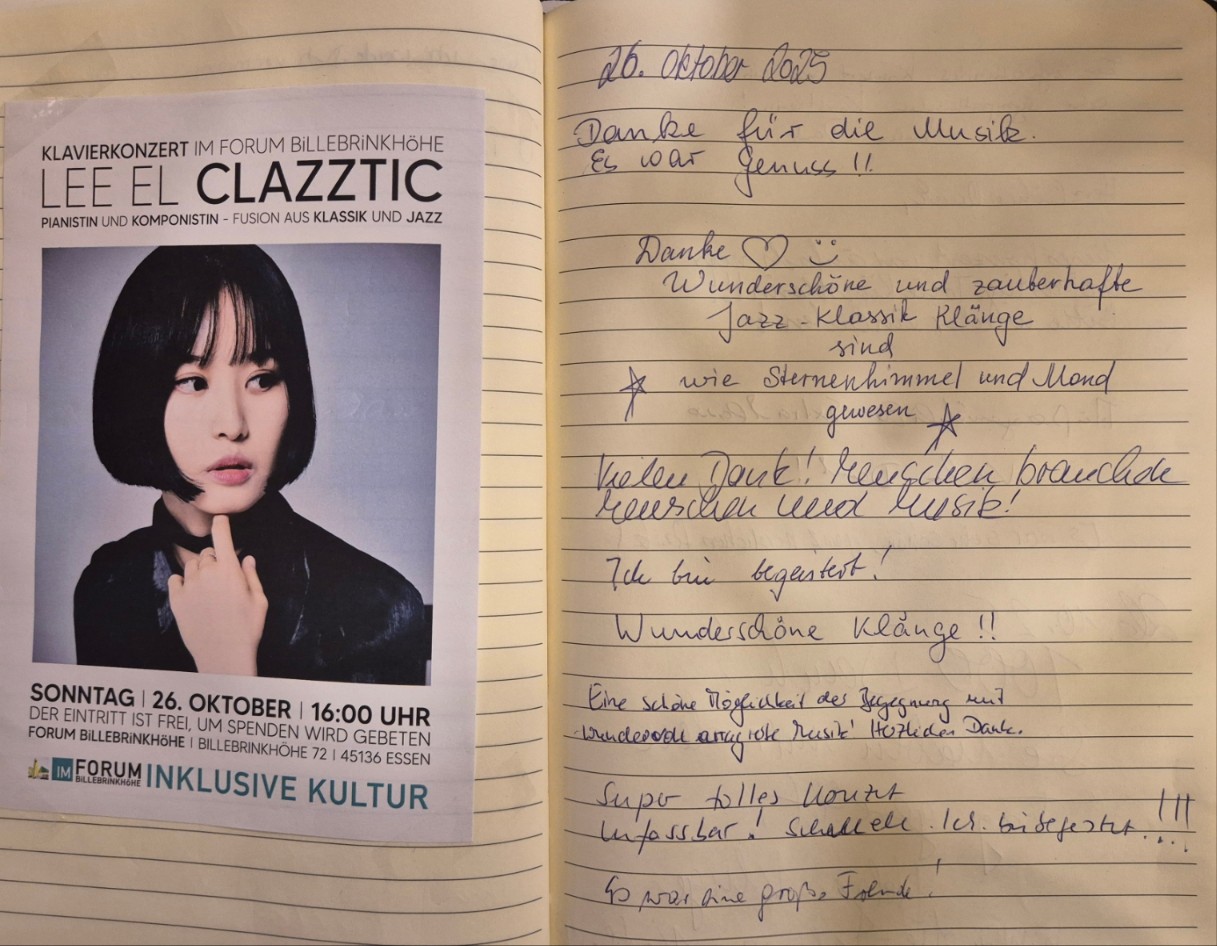 KLAVIERKONZERT IM FORUM BiLLEBRiNKHÖHE
LEE EL CLAZZTIC
PIANISTIN UND KOMPONISTIN - FUSION AUS KLASSIK UND JAZZ
SONNTAG | 26. OKTOBER | 16:00 UHR
DER EINTRITT IST FREI, UM SPENDEN WIRD GEBETEN
FORUM BiLLEBRiNKHÖHE | BILLEBRINKHÖHE 72 | 45136 ESSEN
IM FORUM BiLLEBRiNKHÖHE INKLUSIVE KULTUR
26. Oktober 2025
Danke für die Musik.
Es war Genuss!!
Danke
Wunderschöne und zauberhafte
Jazz-Klassik Klänge
sind
wie Sternenhimmel und Mond
gewesen
Vielen Dank! Menschen brauchen
Menschen und Musik!
Ich bin begeistert!
Wunderschöne Klänge!!
Eine schöne Möglichkeit der Begegnung mit
Musik! Herzlichen Dank.
Super tolles Konzert
Unfassbar! Ich bin !!!
Es war eine große Freude!